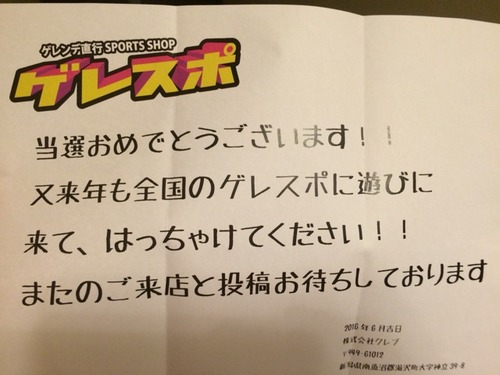 ゲレンデ直行 SPORTS SHOP
ゲレスポ
当選おめでとうございます！！
又来年も全国のゲレスポに遊びに
来て、はっちゃけてください！！
またのご来店と投稿お待ちしております
2016年6月吉日
株式会社クレブ
〒949-61012
新潟県南魚沼郡湯沢町大字神立39-8